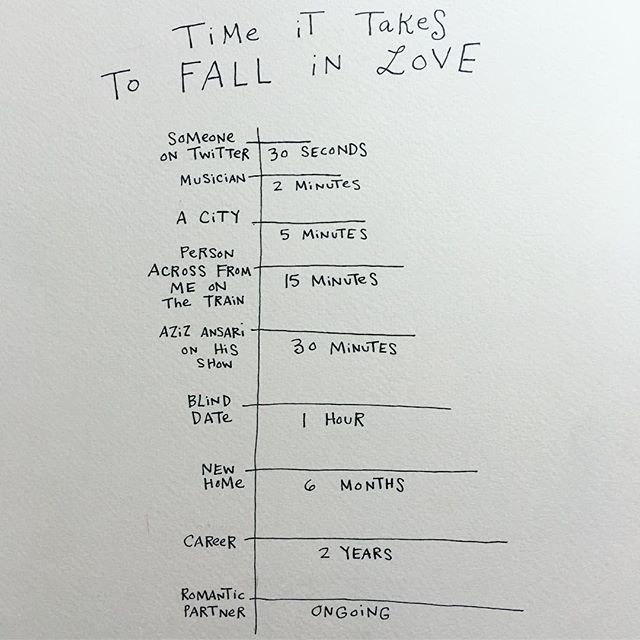 TiMe iT TakeS
To FALL iN LOVE
SOMEONE
ON TWiTTER
30 SECONDS
MUSiCiAN
2 MiNUTeS
A CiTY
5 MiNUTES
PeRSON
ACROSS FROM
ME ON
The TRAiN
15 MiNUTeS
AZiZ ANSARi
ON HiS
SHOW
30 MiNUTES
BLiND
DATE
1 HOUR
NEW
HOMe
6 MONTHS
CAReeR
2 YEARS
ROMANTiC
PARTNER
ONGOiNG